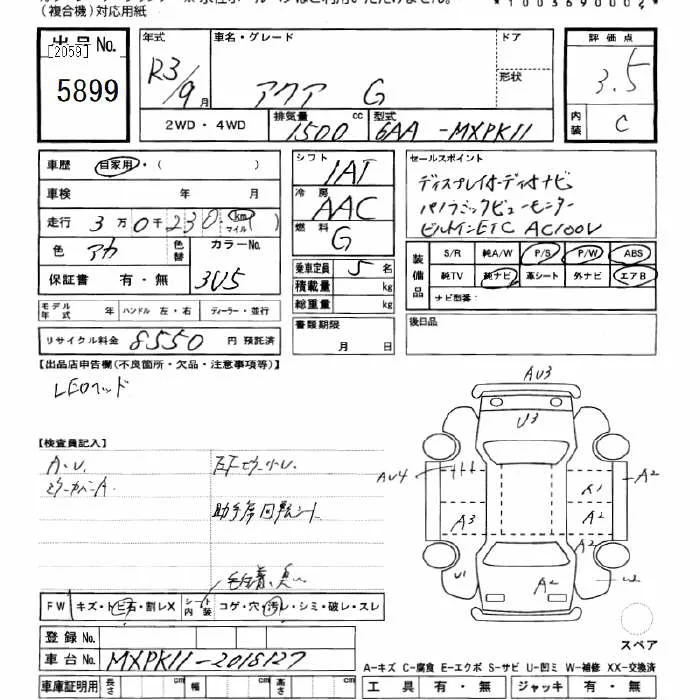 (複合機)対応用紙
出品No.
[2059]
5899
年式 車名・グレード ドア
R3/9月 アクア G 形状
評価点
3.5
内装 C
2WD・4WD 排気量 1500 cc 型式 6AA-MXPK11
車歴 自家用・( )
車検 年 月
走行 3万0千230 km マイル
色 アカ 色替 カラーNo. 3U5
保証書 有・無
モデル年式 年 ハンドル 左・右 ディーラー・並行
リサイクル料金 8550 円 預託済
シフト IAT
冷房 AAC
燃料 G
乗車定員 5 名
積載量 kg
総重量 kg
書類期限
月 日
セールスポイント
ディスプレイオーディオナビ
パノラミックビューモニター
ビルトインETC AC100V
装備品 S/R 純A/W P/S P/W ABS
純TV 純ナビ 革シート 外ナビ エアB
ナビ型番:
後日品
【出品店申告欄(不良箇所・欠品・注意事項等)】
LEDヘッド
【検査員記入】
A.U.
ミラーカバーA.
助手席回転シート
FW キズ・トビ石・割レX シート内装 コゲ・穴・汚レ・シミ・破レ・スレ
登録No.
車台No. MXPK11-2015127
車庫証明用 長さ cm 幅 cm 高さ cm
AU3
U3
AU4
A2
A1
A3
A2
A2
U1
A2
W
スペア
A-キズ C-腐食 E-エクボ S-サビ U-凹ミ W-補修 XX-交換済
工具 有・無 ジャッキ 有・無